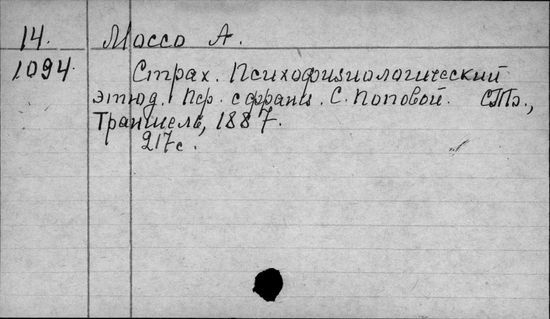 14. Моссо А.
1094. Страх. Психофизиологический
этюд. Пер. с франц. С. Поповой. СПб.,
Траншель, 1887.
217 с.